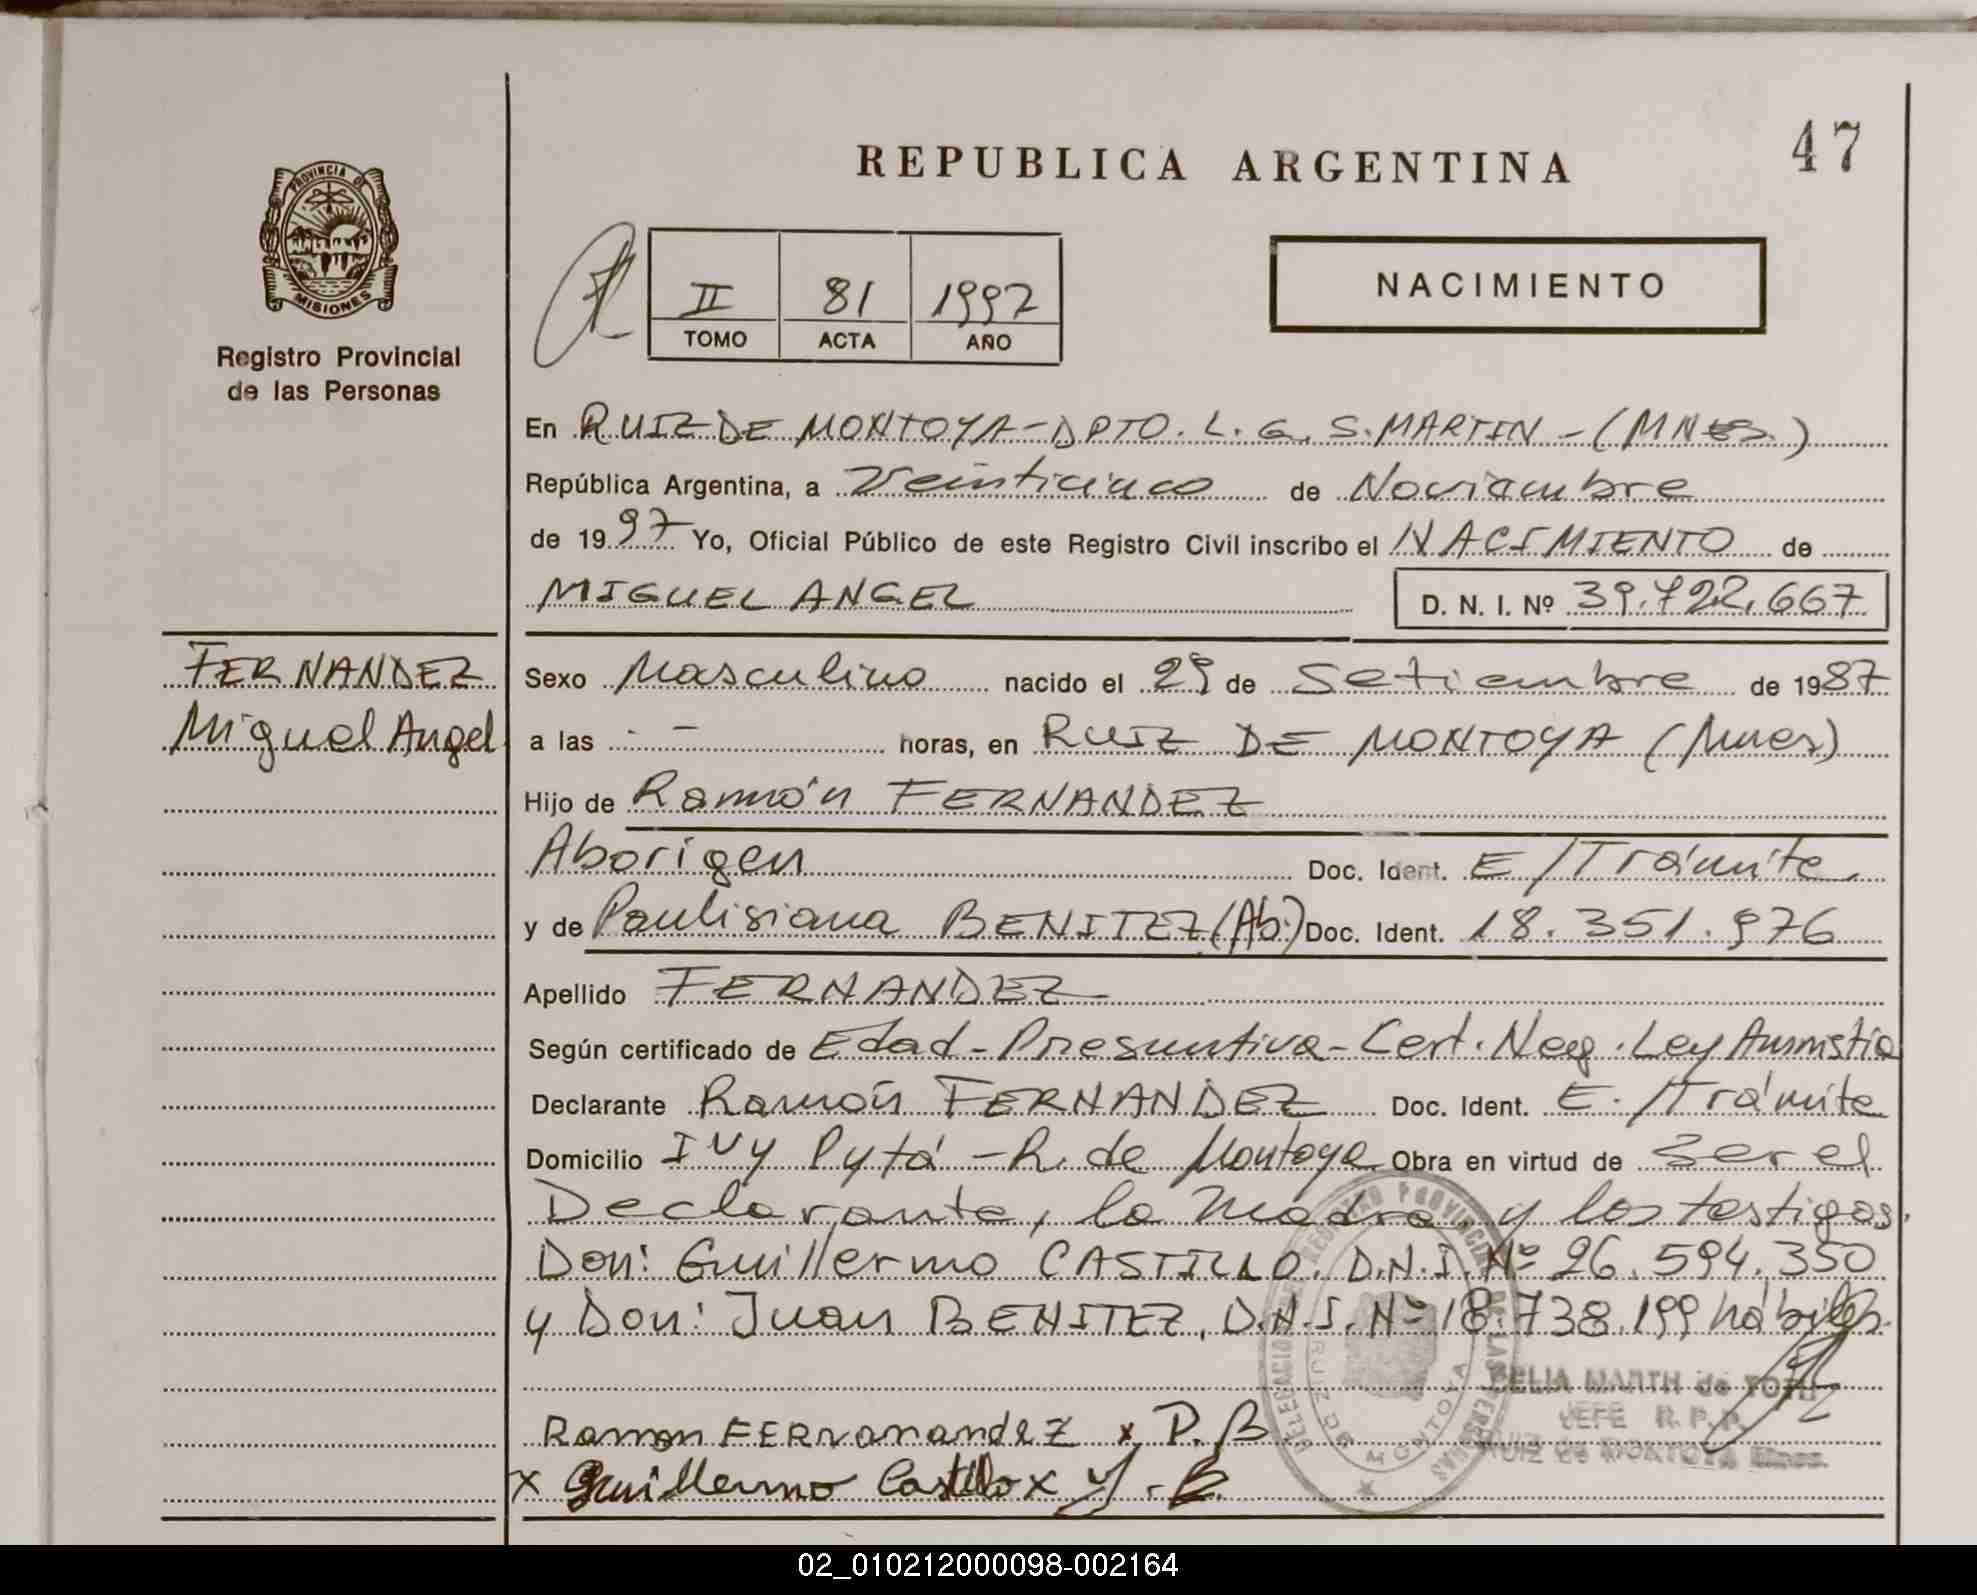 47
REPUBLICA ARGENTINA
PROVINCIA DE
MISIONES
Registro Provincial
de las Personas
II 81 1997
TOMO ACTA AÑO
NACIMIENTO
En RUIZ DE MONTOYA - DPTO. L. G. S. MARTIN - (MNES.)
República Argentina, a Veinticinco de Noviembre
de 1997 Yo, Oficial Público de este Registro Civil inscribo el NACIMIENTO de
MIGUEL ANGEL D. N. I. Nº 39.722.667
FERNANDEZ
Miguel Angel
Sexo Masculino nacido el 29 de Setiembre de 1987
a las - - horas, en RUIZ DE MONTOYA (Mnes)
Hijo de Ramón FERNANDEZ
Aborigen Doc. Ident. E/Trámite
y de Paulisiana BENITEZ (Ab.) Doc. Ident. 18.351.976
Apellido FERNANDEZ
Según certificado de Edad - Presuntiva - Cert. Neg. Ley Amnistia
Declarante Ramón FERNANDEZ Doc. Ident. E./Trámite
Domicilio IVY Pytá - R. de Montoya Obra en virtud de ser el
Declarante, la Madre y los testigos
Don: Guillermo CASTILLO. D.N.I. Nº 26.594.350
y Don: Juan BENITEZ, D.N.I. Nº 18.738.199 hábiles.
CELIA MARTH de TOTH
JEFE R. P. P.
RUIZ de MONTOYA Mnes.
Ramon FERnanandEZ x P. B
x Guillermo Castillo x J - B
02_010212000098-002164